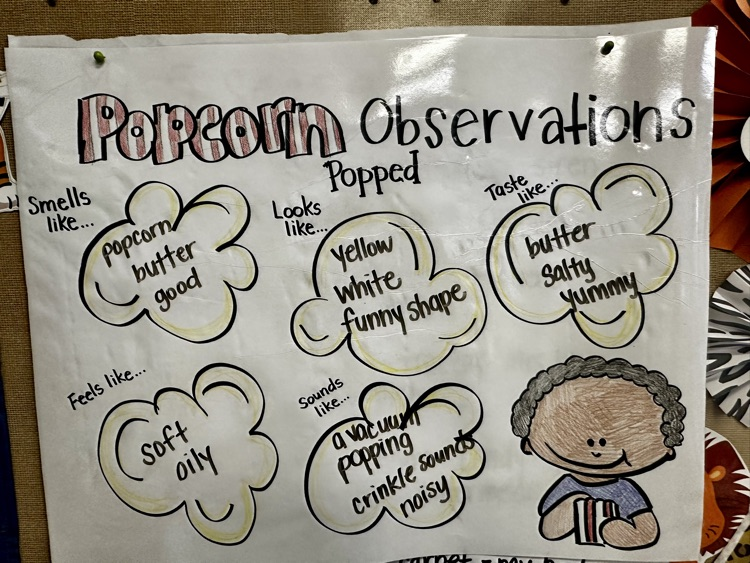 Popcorn Observations
Popped
Smells
like...
popcorn
butter
good
Looks
like...
yellow
white
funny shape
Taste
like...
butter
salty
yummy
Feels like...
soft
oily
Sounds
like...
a vacuum
popping
crinkle sounds
noisy